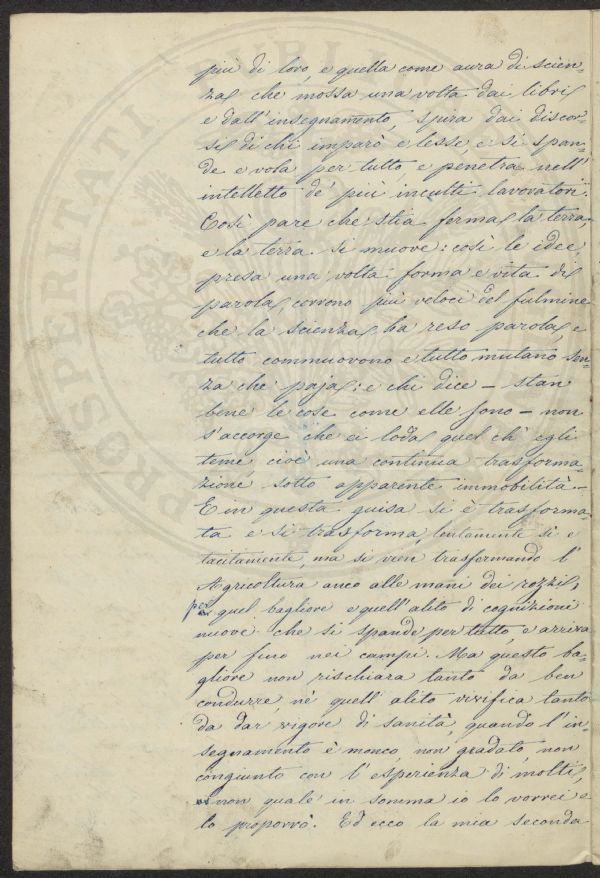 più di loro, e quella come aura di scien-
za che mossa una volta dai libri
e dall'insegnamento, spira dai discor-
si di chi imparò e lesse, e si span-
de e vola per tutto e penetra nell'
intelletto de' più inculti lavoratori.
Così pare che stia ferma la terra,
e la terra si muove: così le idee,
presa una volta forma e vita di
parola, corrono più veloci del fulmine
che la scienza ha reso parola, e
tutto commuovono e tutto mutano sen-
za che paja: e chi dice – stan
bene le cose come elle sono – non
s'accorge che ei loda quel ch'egli
teme, cioè una continua trasforma
zione sotto apparente immobilità –
E in questa guisa si è trasforma-
ta e si trasforma, lentamente sì e
tacitamente, ma si vien trasformando l'
Agricoltura anco alle mani dei rozzi,
per quel bagliore e quell'alito di cognizioni
nuove che si spande per tutto, e arriva
per fino nei campi. Ma questo ba-
gliore non rischiara tanto da ben
condurre, nè quell'alito vivifica tanto
da dar vigore di sanità, quando l'in-
segnamento è monco, non gradato, non
congiunto con l'esperienza di molti,
non quale in somma io lo vorrei e
lo proporrò. Ed ecco la mia seconda
PROSPERITATI